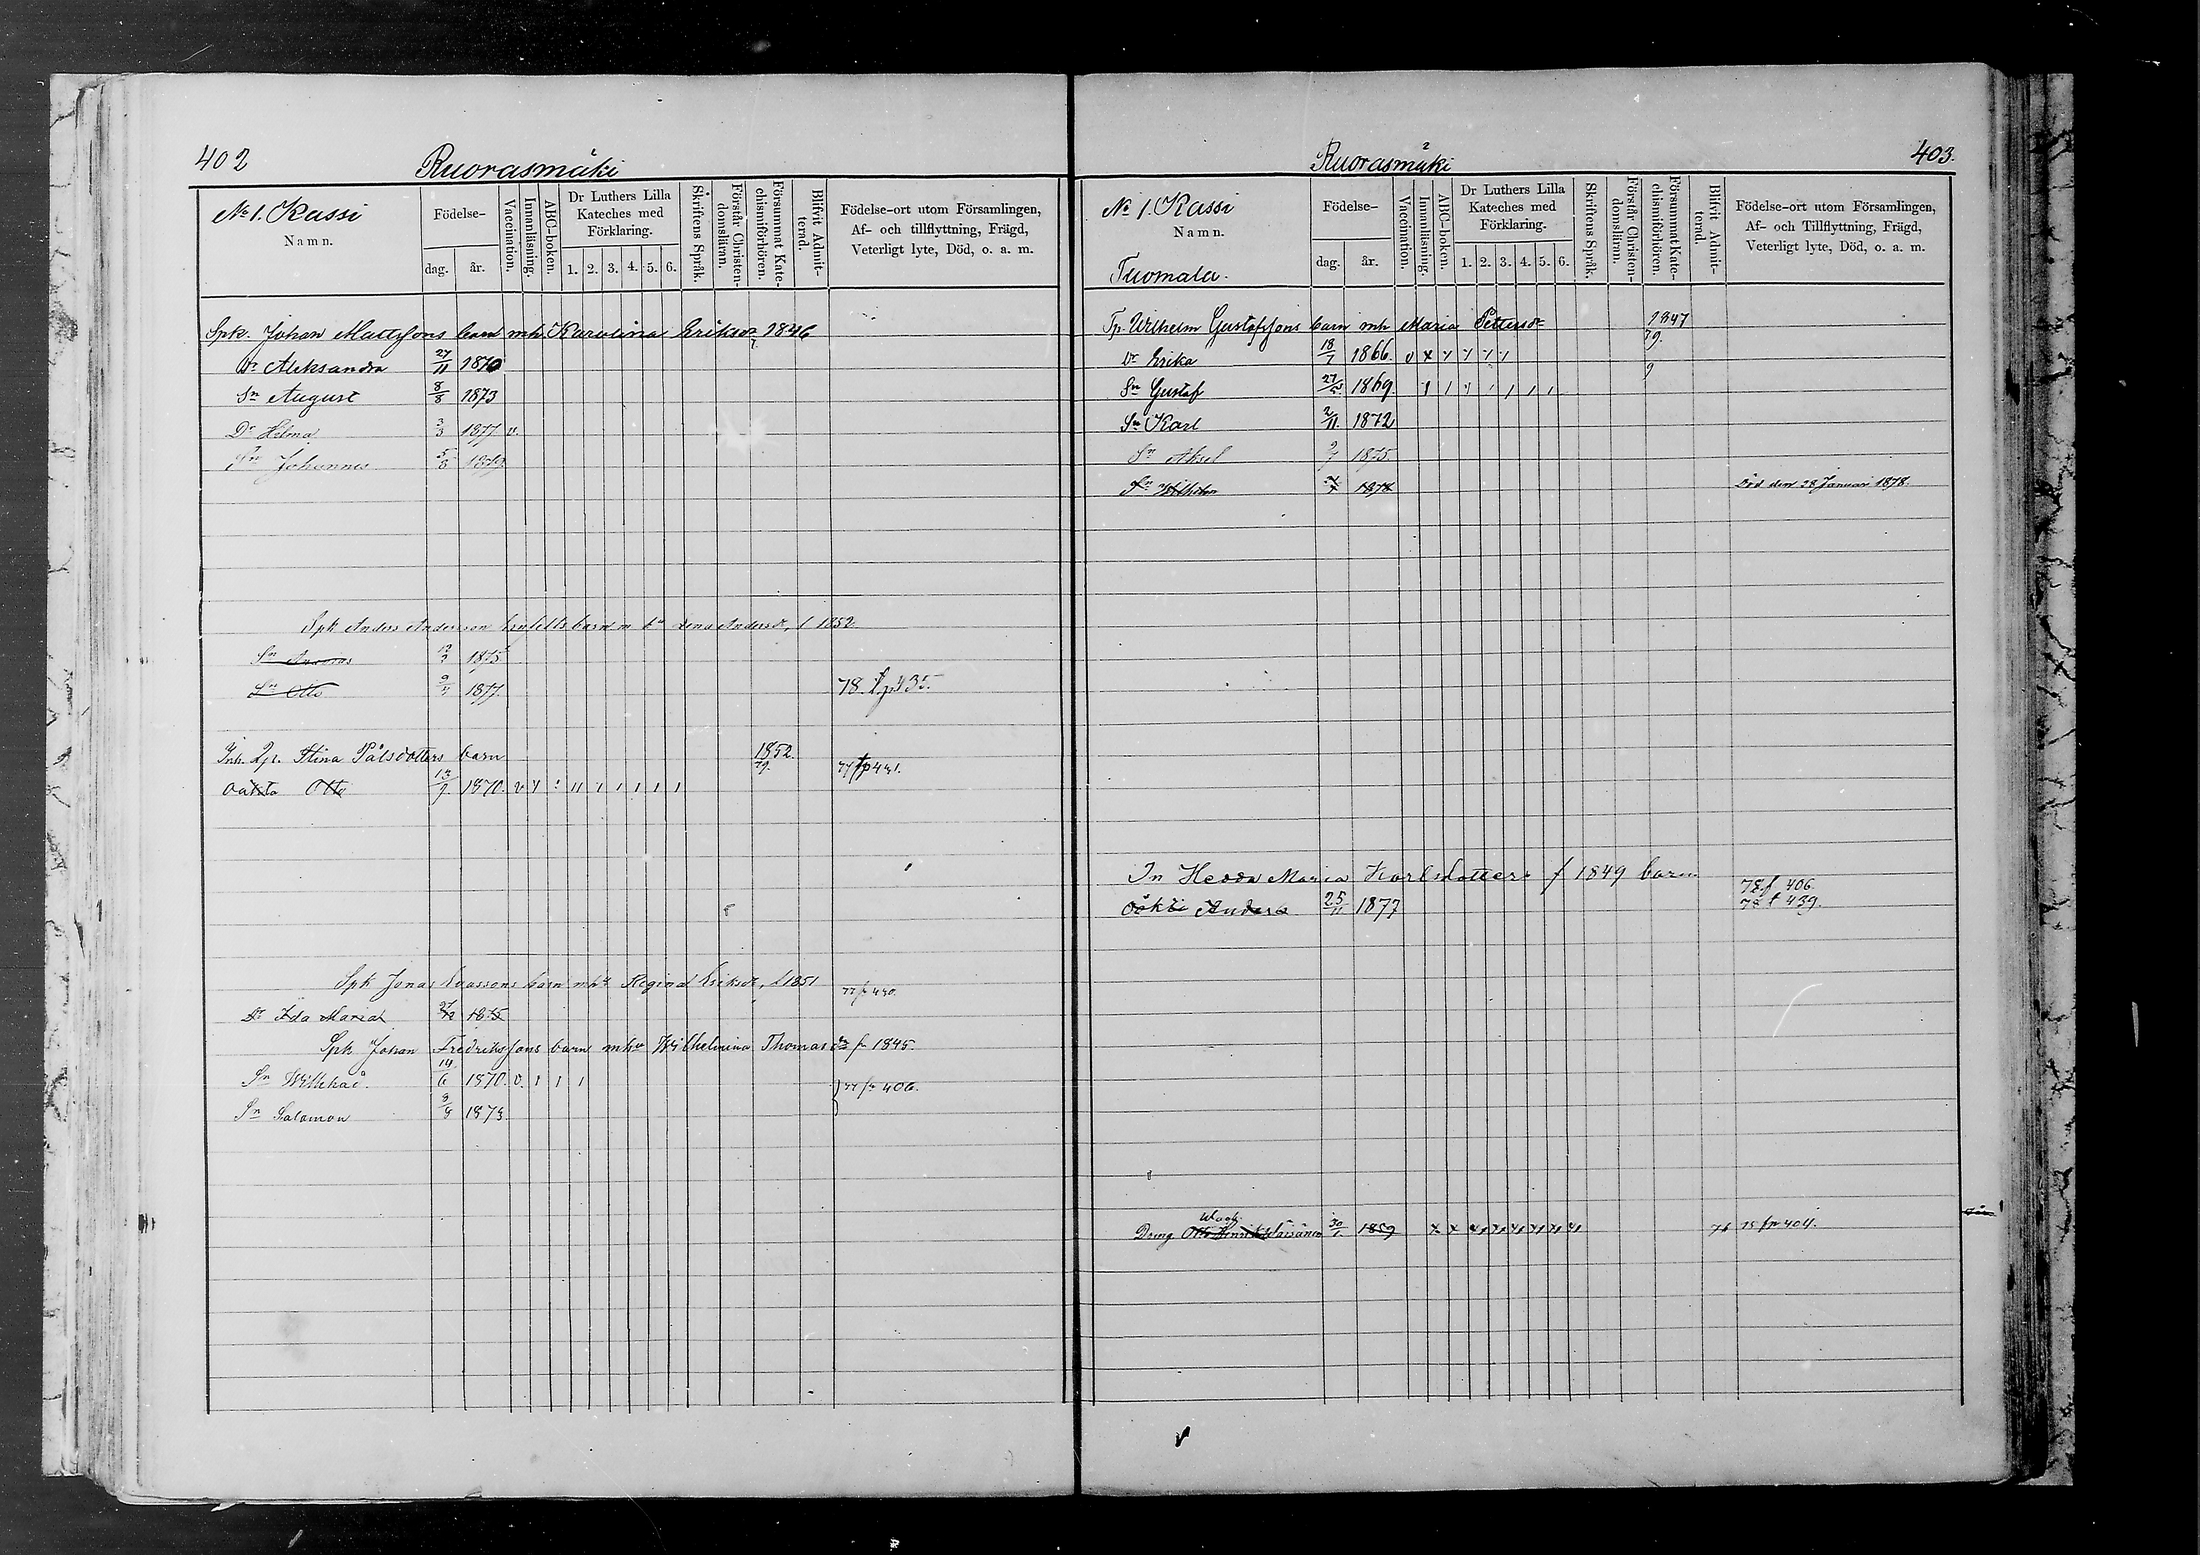 402
Ruorasmäki
No 1. Kassi
Namn.
Födelse-
dag.
år.
Vaccination.
Innanläsning.
ABC-boken.
Dr Luthers Lilla
Kateches med
Förklaring.
1. 2. 3. 4. 5. 6.
Skriftens Språk.
Förstår Christen-
domsläran.
Försummat Kate-
chismiförhören.
Blifvit Admit-
terad.
Födelse-ort utom Församlingen,
Af- och tillflyttning, Frägd,
Veterligt lyte, Död, o. a. m.
Spk. Johan Mattssons barn mh Karolina Eriksdr 1846
Dr Aleksandra 27/11 1870
Sn August 8/8 1873
Dr Hilma 3/3 1877 v.
Sn Johannes 5/8
Spk Anders Andersson barn m Lena Andersdr, f 1852
Sn 1875
Sn Otto 9/7 1877 78 fp 435.
Inh. Stina Pålsdotters barn 1852.
79. 77 fp 431.
oäkta Otto 1870. v
Spk Jonas barn mh Regina Eriksdr, f 1851 77 fp 430.
Dr Ida Maria 1875
Spk Johan Fredrikssons barn mhu Wilhelmina Thomasdr f 1845.
Sn Willehad. 14/6 1870. v. 1 1 1 77 fr 406.
Sn Salomon 1873
403.
Ruorasmäki
No 1. Kassi
Namn.
Tuomala.
Födelse-
dag.
år.
Vaccination.
Innanläsning.
ABC-boken.
Dr Luthers Lilla
Kateches med
Förklaring.
1. 2. 3. 4. 5. 6.
Skriftens Språk.
Förstår Christen-
domslärann.
Försummat Kate-
chismiförhören.
Blifvit Admit-
terad.
Födelse-ort utom Församlingen,
Af- och Tillflyttning, Frägd,
Veterligt lyte, Död, o. a. m.
Tp. Wilhelm Gustafssons barn mh Maria Pettersdr 1847
79.
Dr Erika 18/7 1866. v x
9
Sn Gustaf 1869.
Sn Karl 2/11. 1872
Sn Aksel 1875.
Sn Wilhelm Död den 28 Januari 1878.
In Hedda Maria Karlsdotters f 1849 barn
78 f 406.
oäkta Anders 25/11 1877 78 f 439.
Dräng Otto Henrik Väisänen 30/1 1859 75 fr 404.